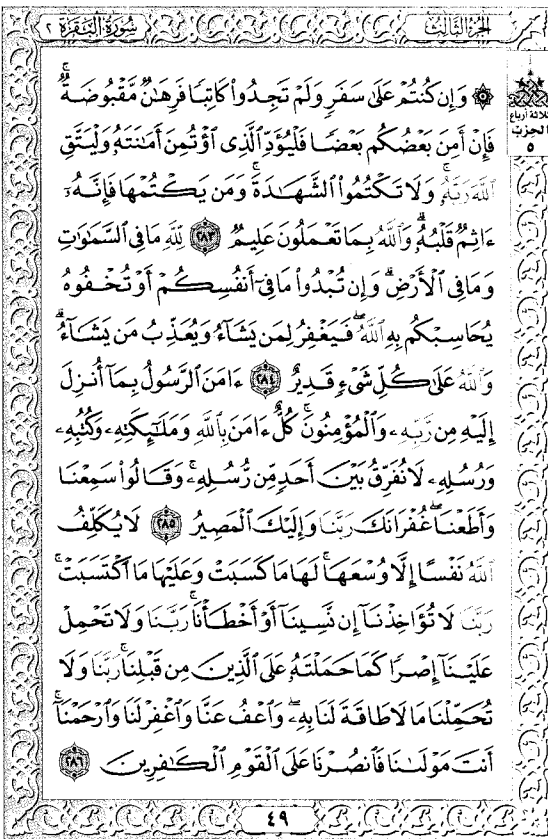 سُورَةُ البَقَرَةِ ٢
الجُزءُ الثَّالِثُ
ثلاثة أرباع
الحزب
٥
۞ وَإِن كُنتُمْ عَلَىٰ سَفَرٍ وَلَمْ تَجِدُوا۟ كَاتِبًا فَرِهَـٰنٌ مَّقْبُوضَةٌ ۖ
فَإِنْ أَمِنَ بَعْضُكُم بَعْضًا فَلْيُؤَدِّ ٱلَّذِى ٱؤْتُمِنَ أَمَـٰنَتَهُۥ وَلْيَتَّقِ
ٱللَّهَ رَبَّهُۥ ۗ وَلَا تَكْتُمُوا۟ ٱلشَّهَـٰدَةَ ۚ وَمَن يَكْتُمْهَا فَإِنَّهُۥٓ
ءَاثِمٌ قَلْبُهُۥ ۗ وَٱللَّهُ بِمَا تَعْمَلُونَ عَلِيمٌ ٢٨٣ لِّلَّهِ مَا فِى ٱلسَّمَـٰوَٰتِ
وَمَا فِى ٱلْأَرْضِ ۗ وَإِن تُبْدُوا۟ مَا فِىٓ أَنفُسِكُمْ أَوْ تُخْفُوهُ
يُحَاسِبْكُم بِهِ ٱللَّهُ ۖ فَيَغْفِرُ لِمَن يَشَآءُ وَيُعَذِّبُ مَن يَشَآءُ ۗ
وَٱللَّهُ عَلَىٰ كُلِّ شَىْءٍ قَدِيرٌ ٢٨٤ ءَامَنَ ٱلرَّسُولُ بِمَآ أُنزِلَ
إِلَيْهِ مِن رَّبِّهِۦ وَٱلْمُؤْمِنُونَ ۚ كُلٌّ ءَامَنَ بِٱللَّهِ وَمَلَـٰٓئِكَتِهِۦ وَكُتُبِهِۦ
وَرُسُلِهِۦ لَا نُفَرِّقُ بَيْنَ أَحَدٍ مِّن رُّسُلِهِۦ ۚ وَقَالُوا۟ سَمِعْنَا
وَأَطَعْنَا ۖ غُفْرَانَكَ رَبَّنَا وَإِلَيْكَ ٱلْمَصِيرُ ٢٨٥ لَا يُكَلِّفُ
ٱللَّهُ نَفْسًا إِلَّا وُسْعَهَا ۚ لَهَا مَا كَسَبَتْ وَعَلَيْهَا مَا ٱكْتَسَبَتْ ۗ
رَبَّنَا لَا تُؤَاخِذْنَآ إِن نَّسِينَآ أَوْ أَخْطَأْنَا ۚ رَبَّنَا وَلَا تَحْمِلْ
عَلَيْنَآ إِصْرًا كَمَا حَمَلْتَهُۥ عَلَى ٱلَّذِينَ مِن قَبْلِنَا ۚ رَبَّنَا وَلَا
تُحَمِّلْنَا مَا لَا طَاقَةَ لَنَا بِهِۦ ۖ وَٱعْفُ عَنَّا وَٱغْفِرْ لَنَا وَٱرْحَمْنَآ ۚ
أَنتَ مَوْلَىٰنَا فَٱنصُرْنَا عَلَى ٱلْقَوْمِ ٱلْكَـٰفِرِينَ ٢٨٦
٤٩